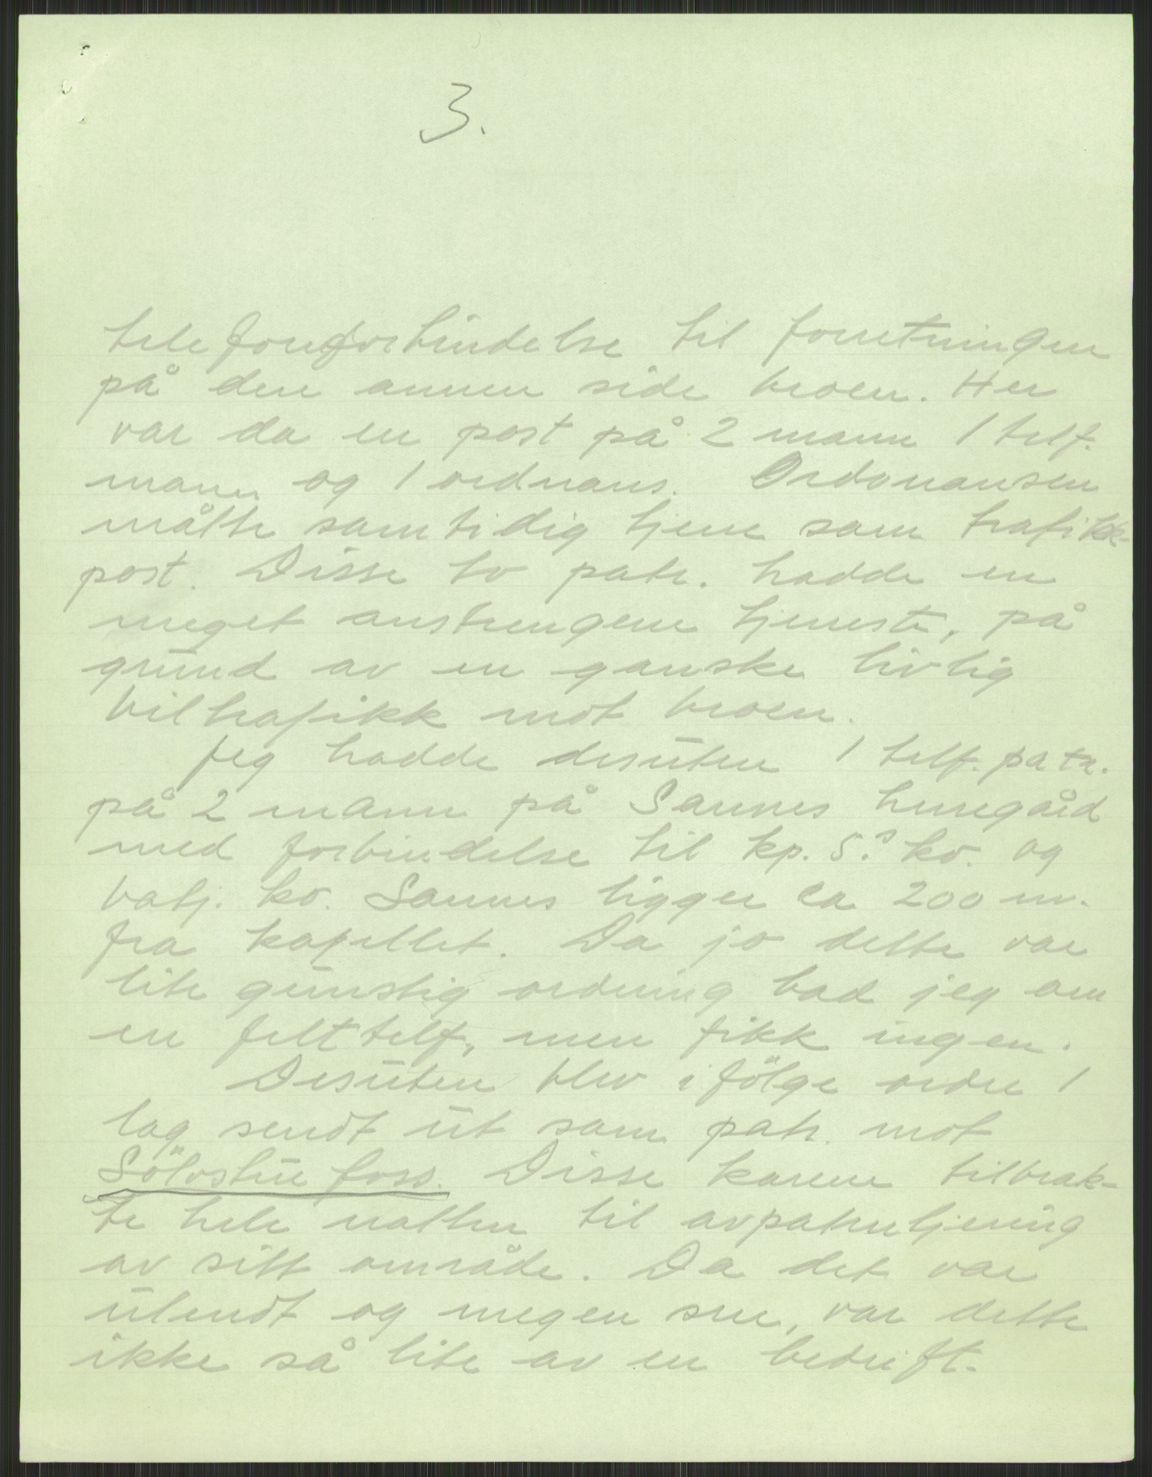 3.
telefonforbindelse til forretningen
på den annen side broen. Her
var da en post på 2 mann 1 telf.
mann og 1 ordnans. Ordonansen
måtte samtidig tjene som trafikk-
post. Disse to patr. hadde en
meget anstrengene tjeneste, på
grund av en ganske livlig
biltrafikk mot broen.
Jeg hadde desuten 1 telf. patr.
på 2 mann på Sannes
med forbindelse til kp. 5. ko. og
batj. ko. Sannes ligger ca 200 m.
fra kapellet. Da jo dette var
lite gunstig ordning bad jeg om
en felttelf, men fikk ingen.
Desuten blev ifölge ordre 1
lag sendt ut som patr. mot
Sölvstufoss. Disse karene tilbrak-
te hele natten til avpatruljering
av sitt område. Da det var
ulendt og megen sne, var dette
ikke så lite av en bedrift.